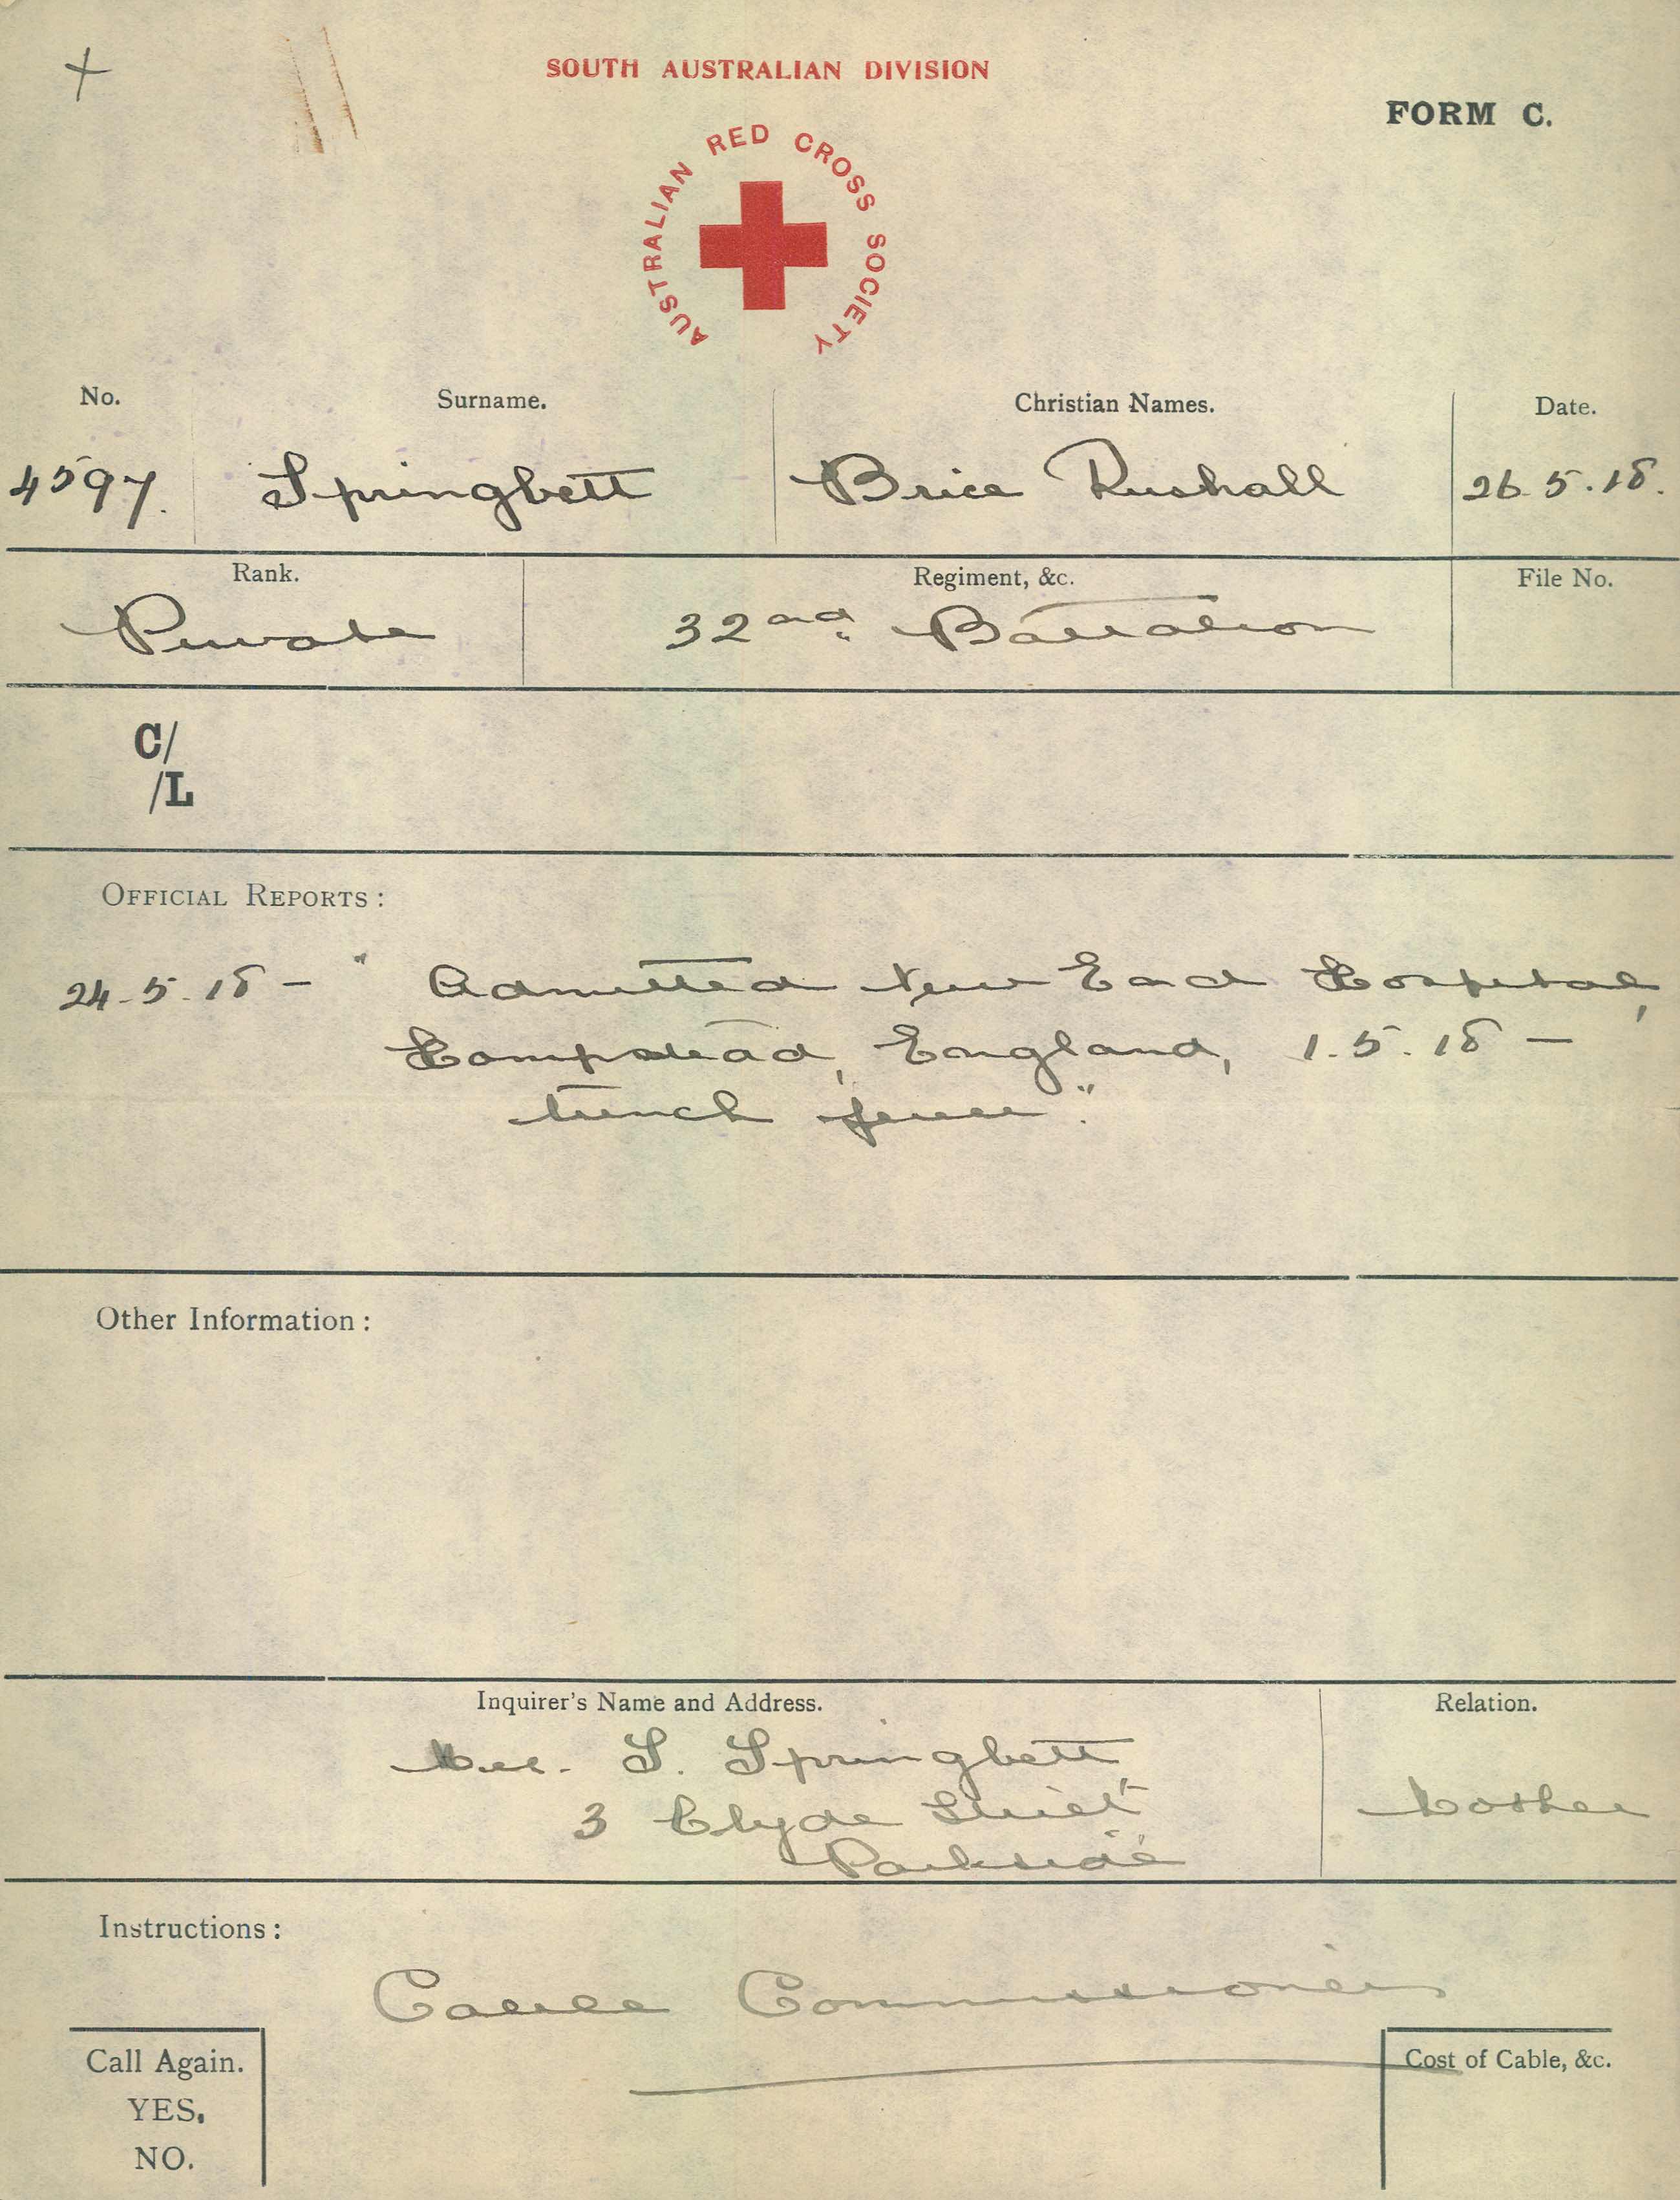 SOUTH AUSTRALIAN DIVISION
FORM C.
AUSTRALIAN RED CROSS SOCIETY
No. Surname. Christian Names. Date.
4597. Springbett Brice Rushall 26.5.18.
Rank. Regiment, &c. File No.
Private 32nd Battalion
C/
/L
OFFICIAL REPORTS:
24.5.18 - " Admitted New End Hospital,
Hampstead, England, 1.5.18 -
trench fever".
Other Information:
Inquirer's Name and Address. Relation.
Mrs. S. Springbett
3 Clyde Street Mother
Parkside
Instructions:
Cable Commissioners
Call Again. Cost of Cable, &c.
YES.
NO.